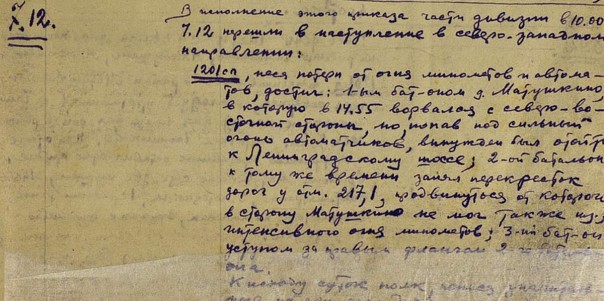 7.12.
В исполнение этого приказа части дивизии в 10.00
7.12 перешли в наступление в северо-западном
направлении:
1201сп, неся потери от огня минометов и автома-
тов, достиг: 1-ым бат-оном д. Матушкино,
в которую в 14.55 ворвался с северо-во-
сточной стороны, но, попав под сильный
огонь автоматчиков, вынужден был отойти
к Ленинградскому шоссе; 2-ой батальон
к тому же времени занял перекресток
дорог у отм. 217,1, продвинуться от которого
в сторону Матушкино не мог также из-за
интенсивного огня минометов; 3-ий бат-он
уступом за правым флангом 2-го батальо-
она.
К исходу суток полк, неся